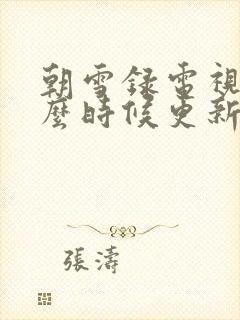 朝雪録電視
麼時候更新
張濤